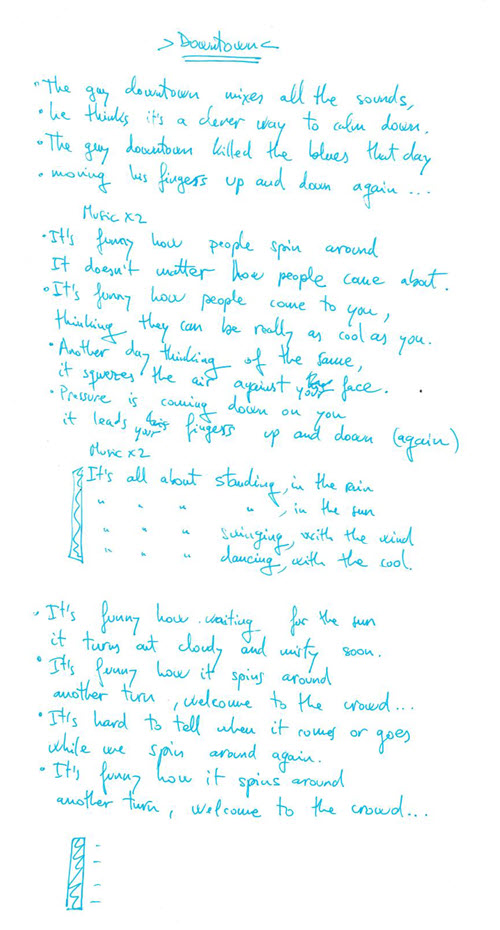 > Downtown <
"The guy downtown mixes all the sounds,
• he thinks it's a clever way to calm down.
• The guy downtown killed the blues that day
• moving his fingers up and down again ...
Music x2
• It's funny how people spin around
It doesn't matter how people came about.
• It's funny how people come to you,
thinking they can be really as cool as you.
• Another day thinking of the same,
it squezes the air against your face.
• Pressure is coming down on you
it leads your fingers up and down (again)
Music x2
It's all about standing, in the rain
" " " " , in the sun
" " " swinging, with the wind
" " " dancing, with the cool.
• It's funny how waiting for the sun
it turns out cloudy and misty soon.
• It's funny how it spins around
another turn, welcome to the crowd...
• It's hard to tell when it comes or goes
while we spin around again.
• It's funny how it spins around
another turn, welcome to the crowd...
–
–
–
–